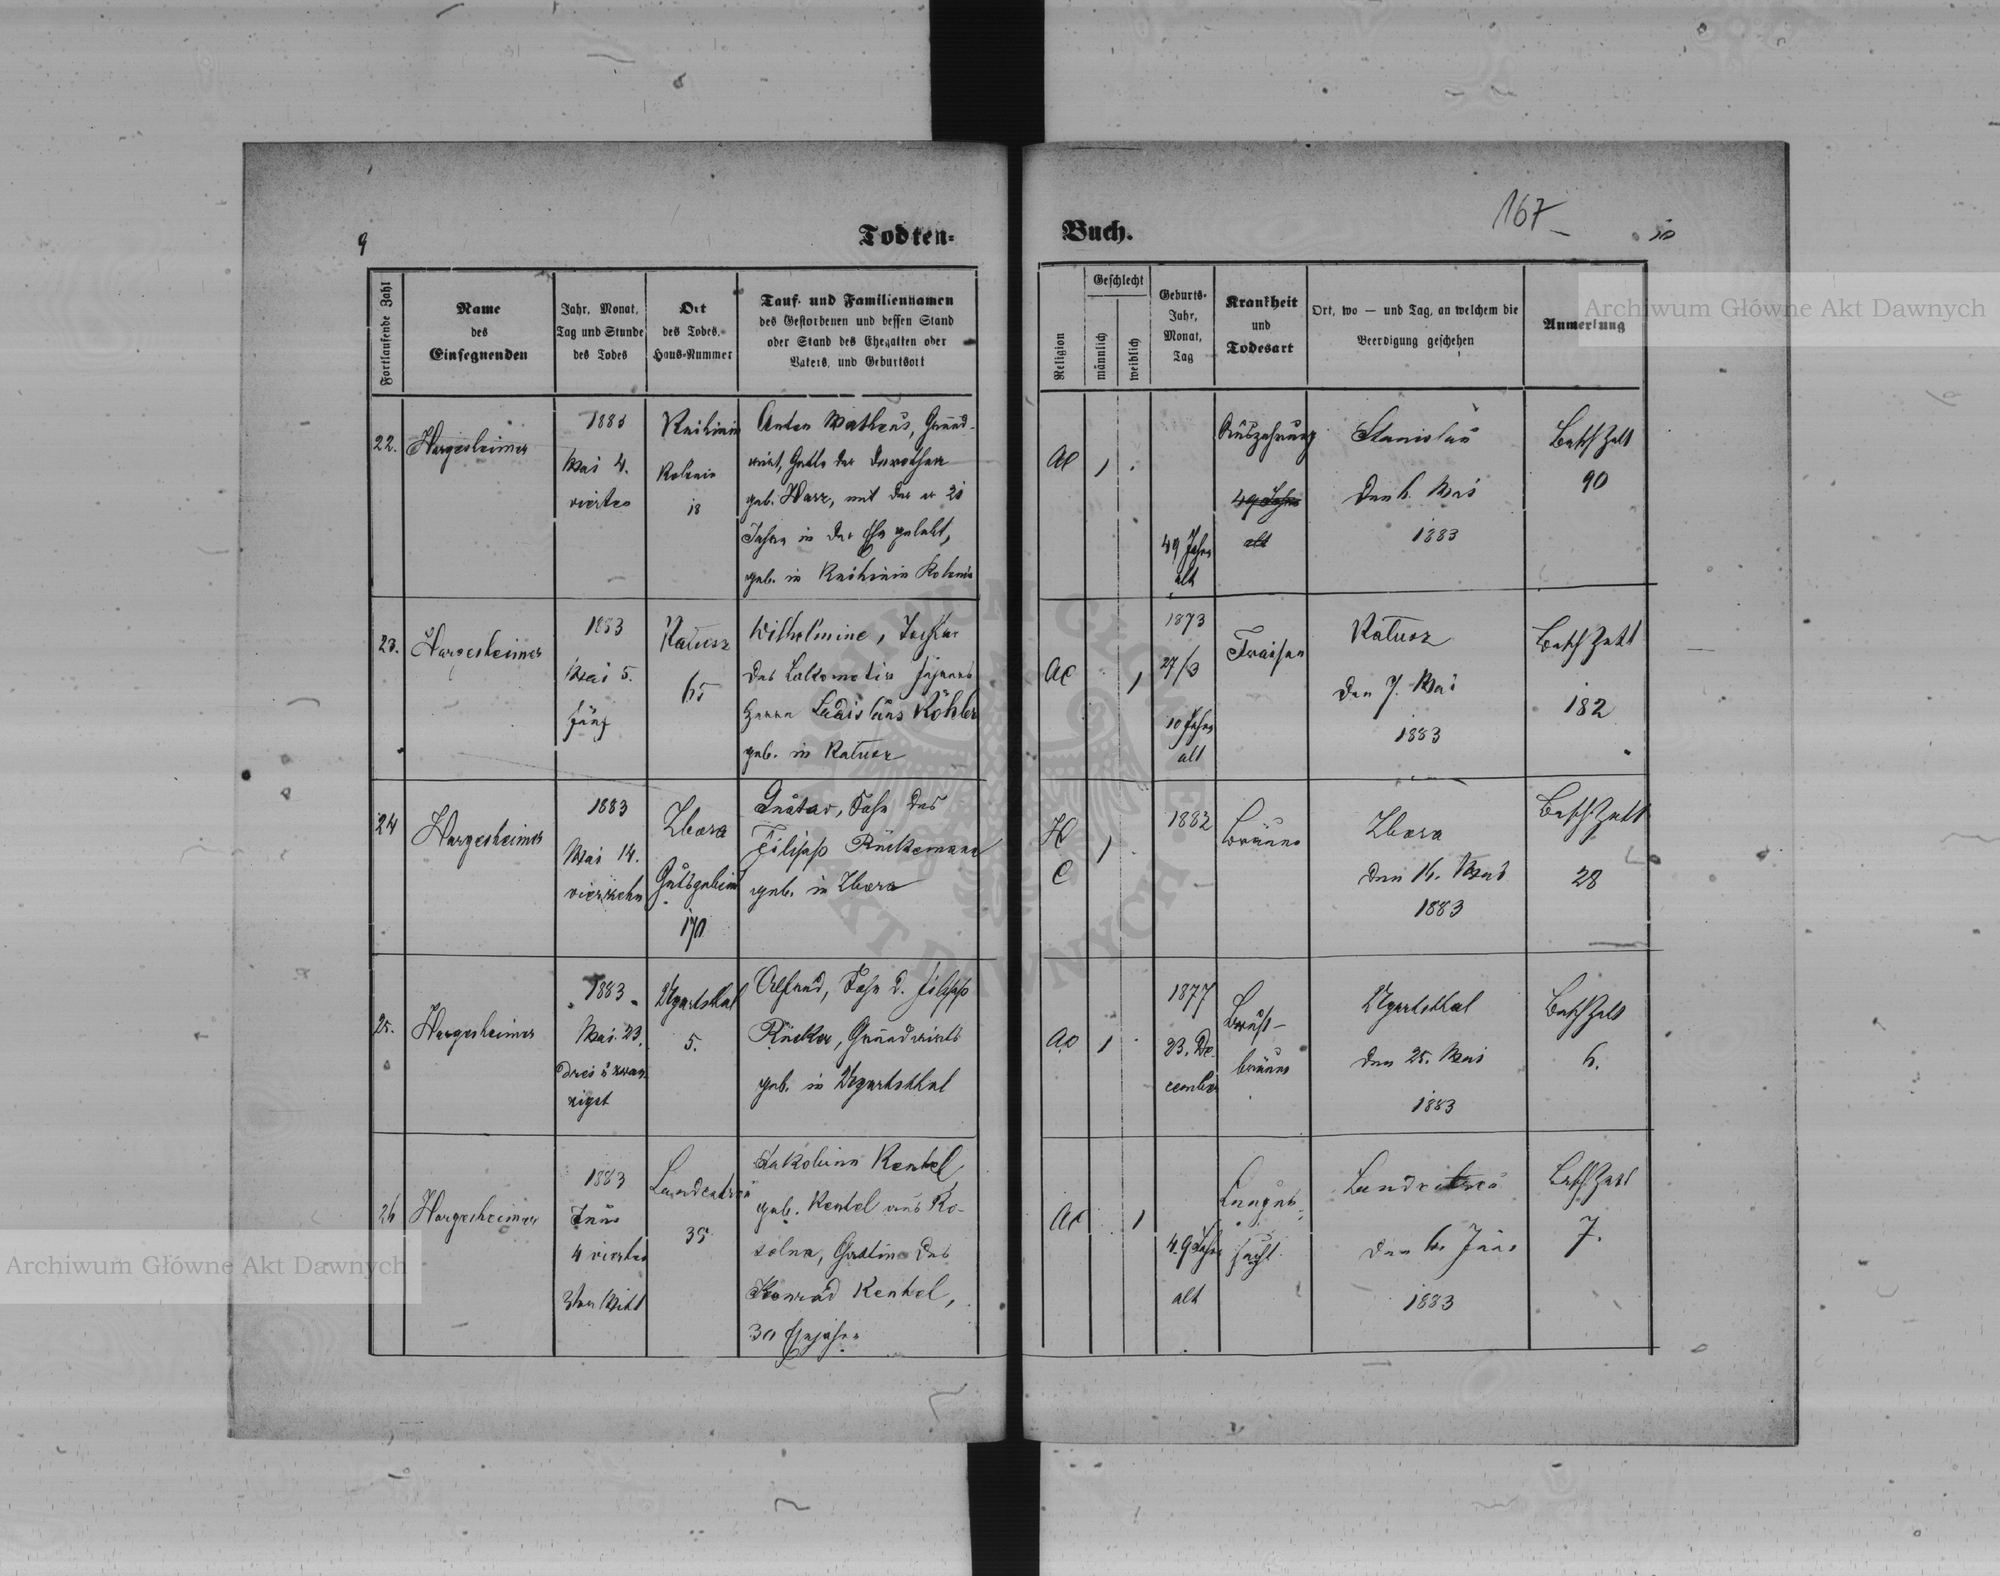 167
9
10
Todten-
Buch.
Fortlaufende Zahl
Name
des
Einsegnenden
Jahr, Monat,
Tag und Stunde
des Todes
Ort
des Todes,
Haus-Nummer
Tauf- und Familiennamen
des Gestorbenen und dessen Stand
oder Stand des Ehegatten oder
Vaters, und Geburtsort
Religion
Geschlecht
männlich
weiblich
Geburts-
Jahr,
Monat,
Tag
Krankheit
und
Todesart
Ort, wo — und Tag, an welchem die
Beerdigung geschehen
Anmerkung
22.
Hargesheimer
1883
Mai 4.
vierten
Knihinin
Kolonie
18
Anton Matheus, Grund-
wirt, Gatte der Dorothea
geb. Harz, mit der er 21
Jahre in der Ehe gelebt,
geb. in Knihinin Kolonie
AC
49 Jahre
alt
Auszehrung
49 Jahre
alt
Stanislau
den 6. Mai
1883
BeschZett
90
23.
Hargesheimer
1883
Mai 5.
fünf
Kalusz
65
Wilhelmine, Tochter
des Lokomotiv führers
Herrn Ladislaus Köhler
geb. in Kalusz
AC
1873
27/3
10 Jahre
alt
Fraisen
Kalusz
den 7. Mai
1883
BeschZett
182
24
Hargesheimer
1883
Mai 14.
vierzehn
Zbora
Gutsgebiet
170
Gustav, Sohn des
Filipp Rückemann
geb. in Zbora
H
C
1882
Bräune
Zbora
den 16. Mai
1883
BeschZett
28
25.
Hargesheimer
1883
Mai 23.
drei u zwan
zigst
Ugartsthal
5.
Alfred, Sohn d. Filipp
Rücker, Grundwirts
geb. in Ugartsthal
AC
1877
23. De
cember
Brust-
bräune
Ugartsthal
den 25. Mai
1883
BeschZett
6.
26
Hargesheimer
1883
Juni
4 vierten
Landestreu
35
Jakobina Kenkel
geb. Kentel aus Ko-
solna, Gattin des
Konrad Kenkel,
30 Ehejahre
AC
49 Jahre
alt
Lungen-
sucht
Landestreu
den 6. Juni
1883
BeschZett
7.
Archiwum Główne Akt Dawnych
Archiwum Główne Akt Dawnych
ARCHIWUM GŁÓWNE
AKT DAWNYCH